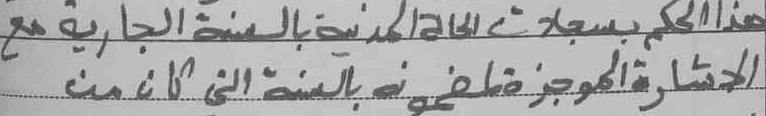 هذا الحكم بسجلات الحالة المدنية بالسنة الجارية مع
الاشارة الموجزة لمضمونه بالسنة التي كان من